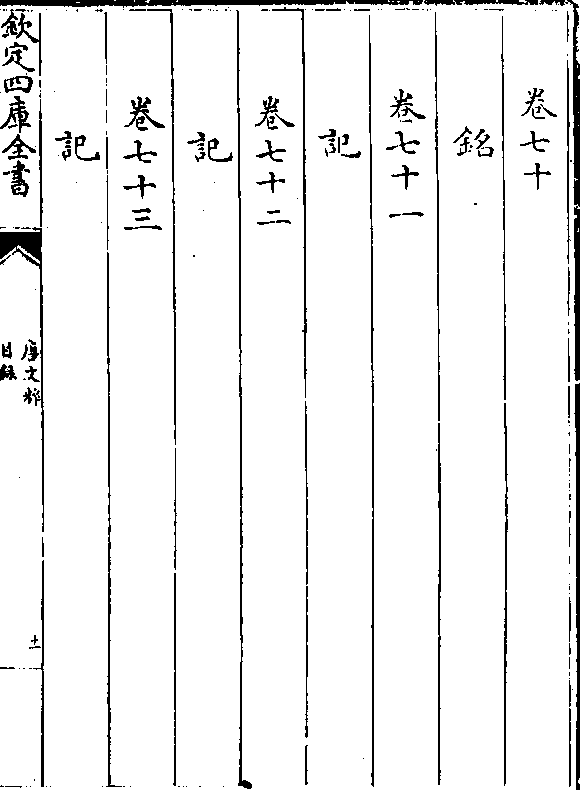 卷七十
銘
卷七十一
記
卷七十二
記
卷七十三
記
欽定四庫全書
唐文粹
目錄
十一